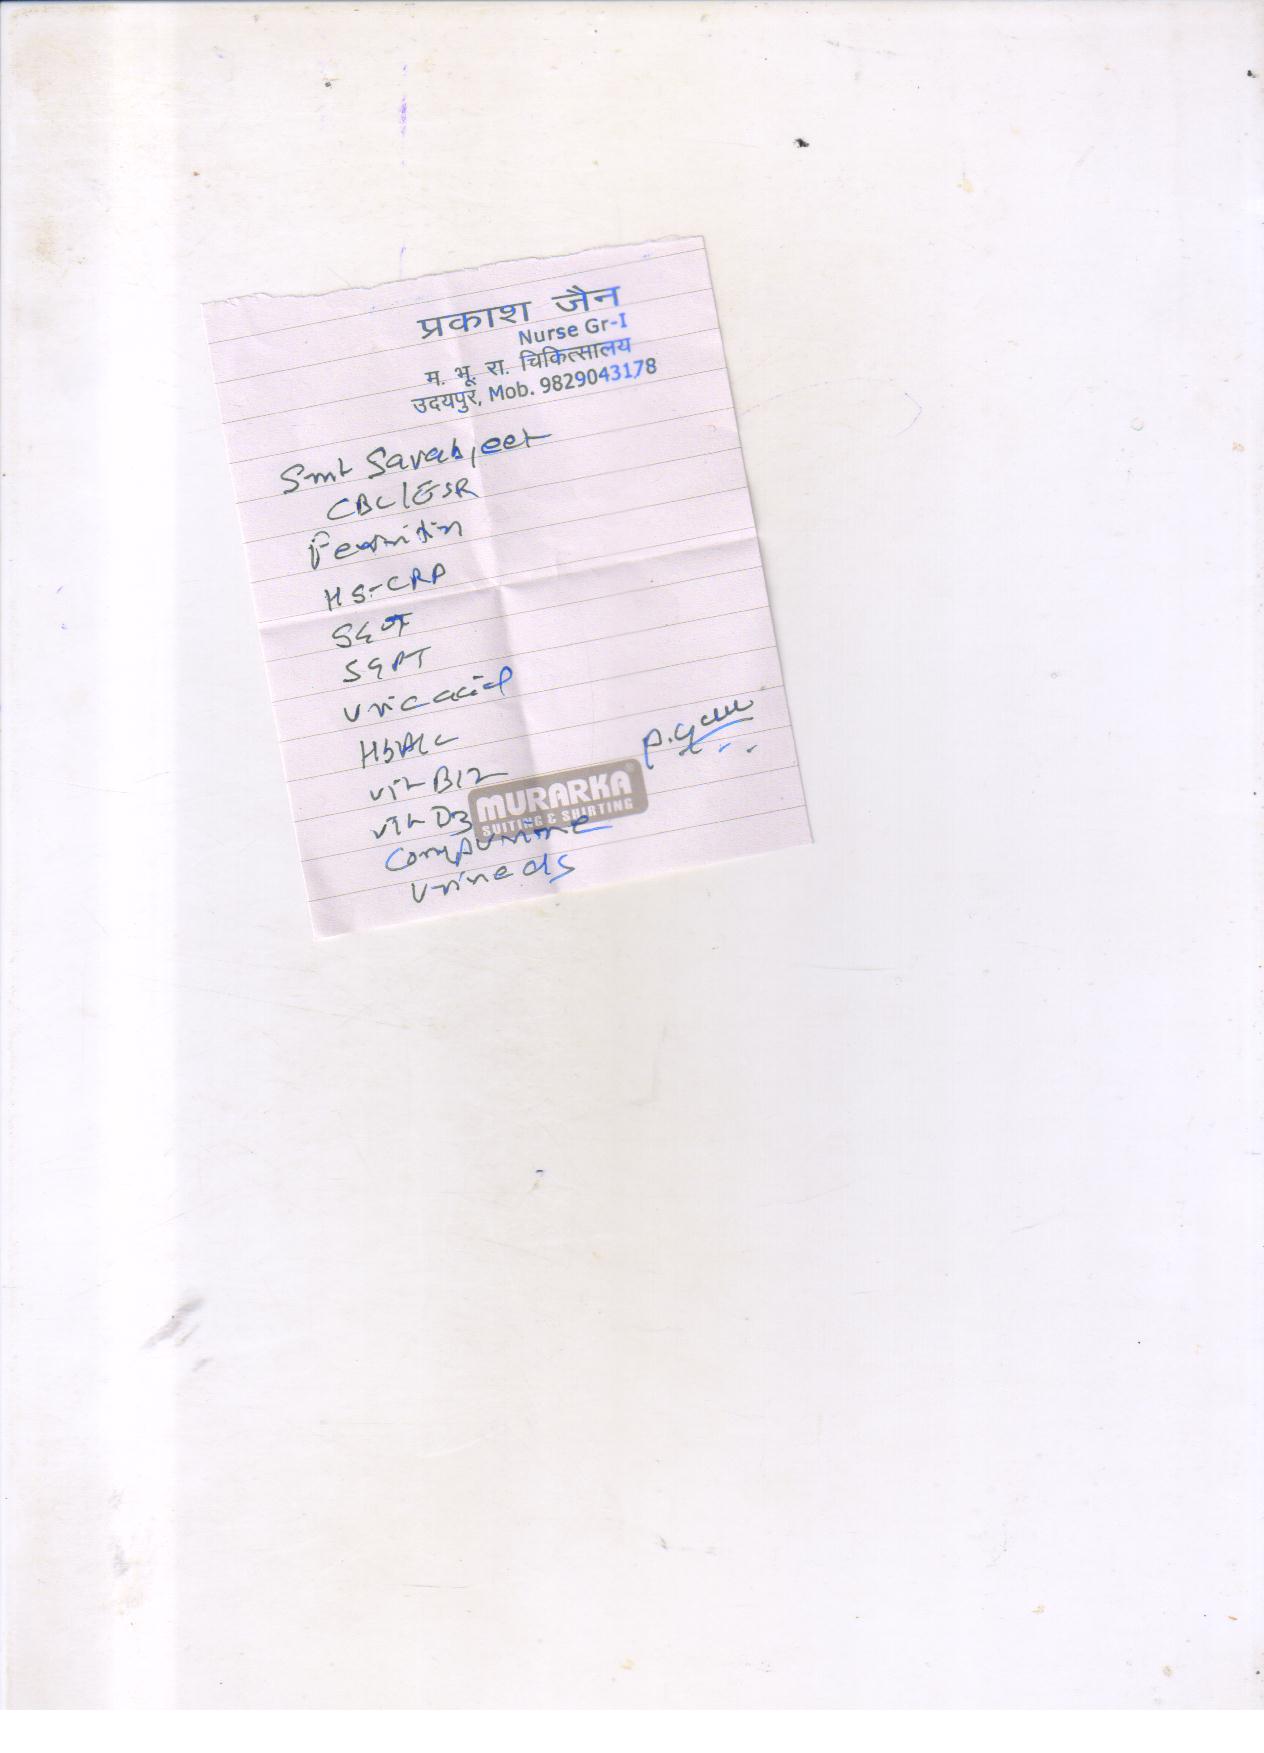 प्रकाश जैन
Nurse Gr-I
म. भू. रा. चिकित्सालय
उदयपुर, Mob. 9829043178
Smt Sarabjeet
CBC/ESR
Ferritin
HS-CRP
SGOT
SGPT
Uric acid
HbA1c
Vit B12
Vit D3
MURARKA
SUITING & SHIRTING
Comp Urine
Urine c/s